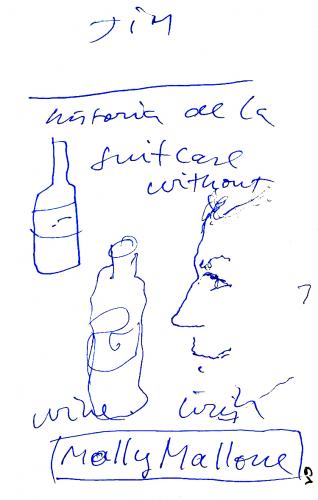 Jim
historia de la
suitcase
without
wine Irish
Molly Mallone